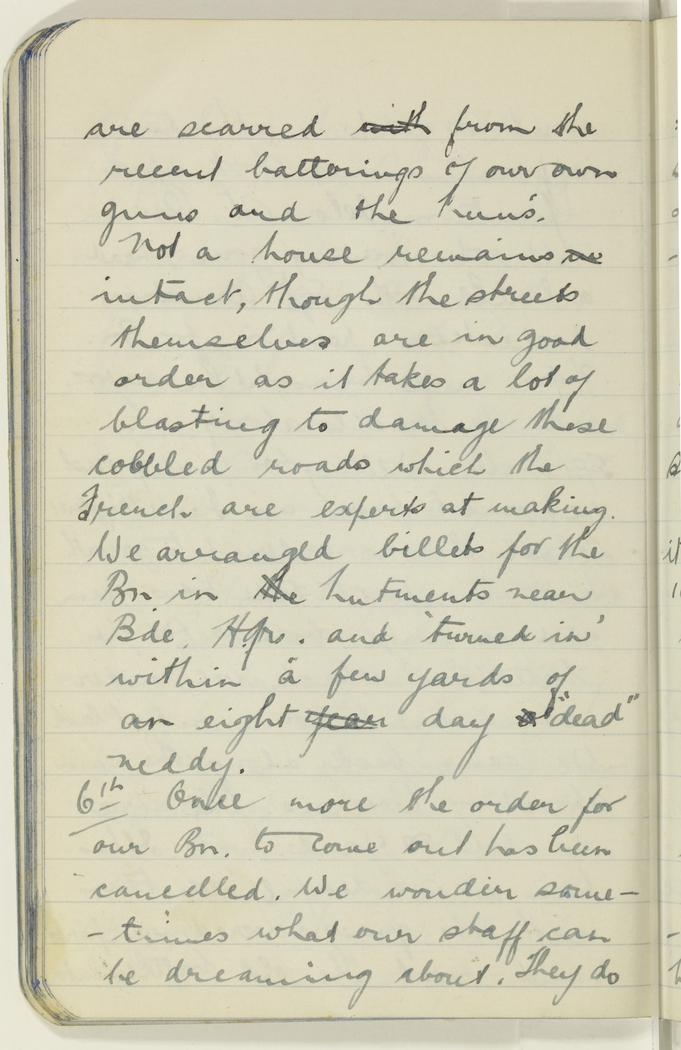 are scarred ~~with~~ from the
recent batterings of our own
guns and the hun's.
Not a house remains
intact, though the streets
themselves are in good
order as it takes a lot of
blasting to damage these
cobbled roads which the
French are experts at making.
We arranged billets for the
Bn in ~~the~~ hutments near
Bde. Hqrs. and 'turned in'
within a few yards of
an eight ~~year~~ day "dead"
neddy.
6th Once more the order for
our Bn. to come out has been
cancelled. We wonder some-
-times what our staff can
be dreaming about. They do